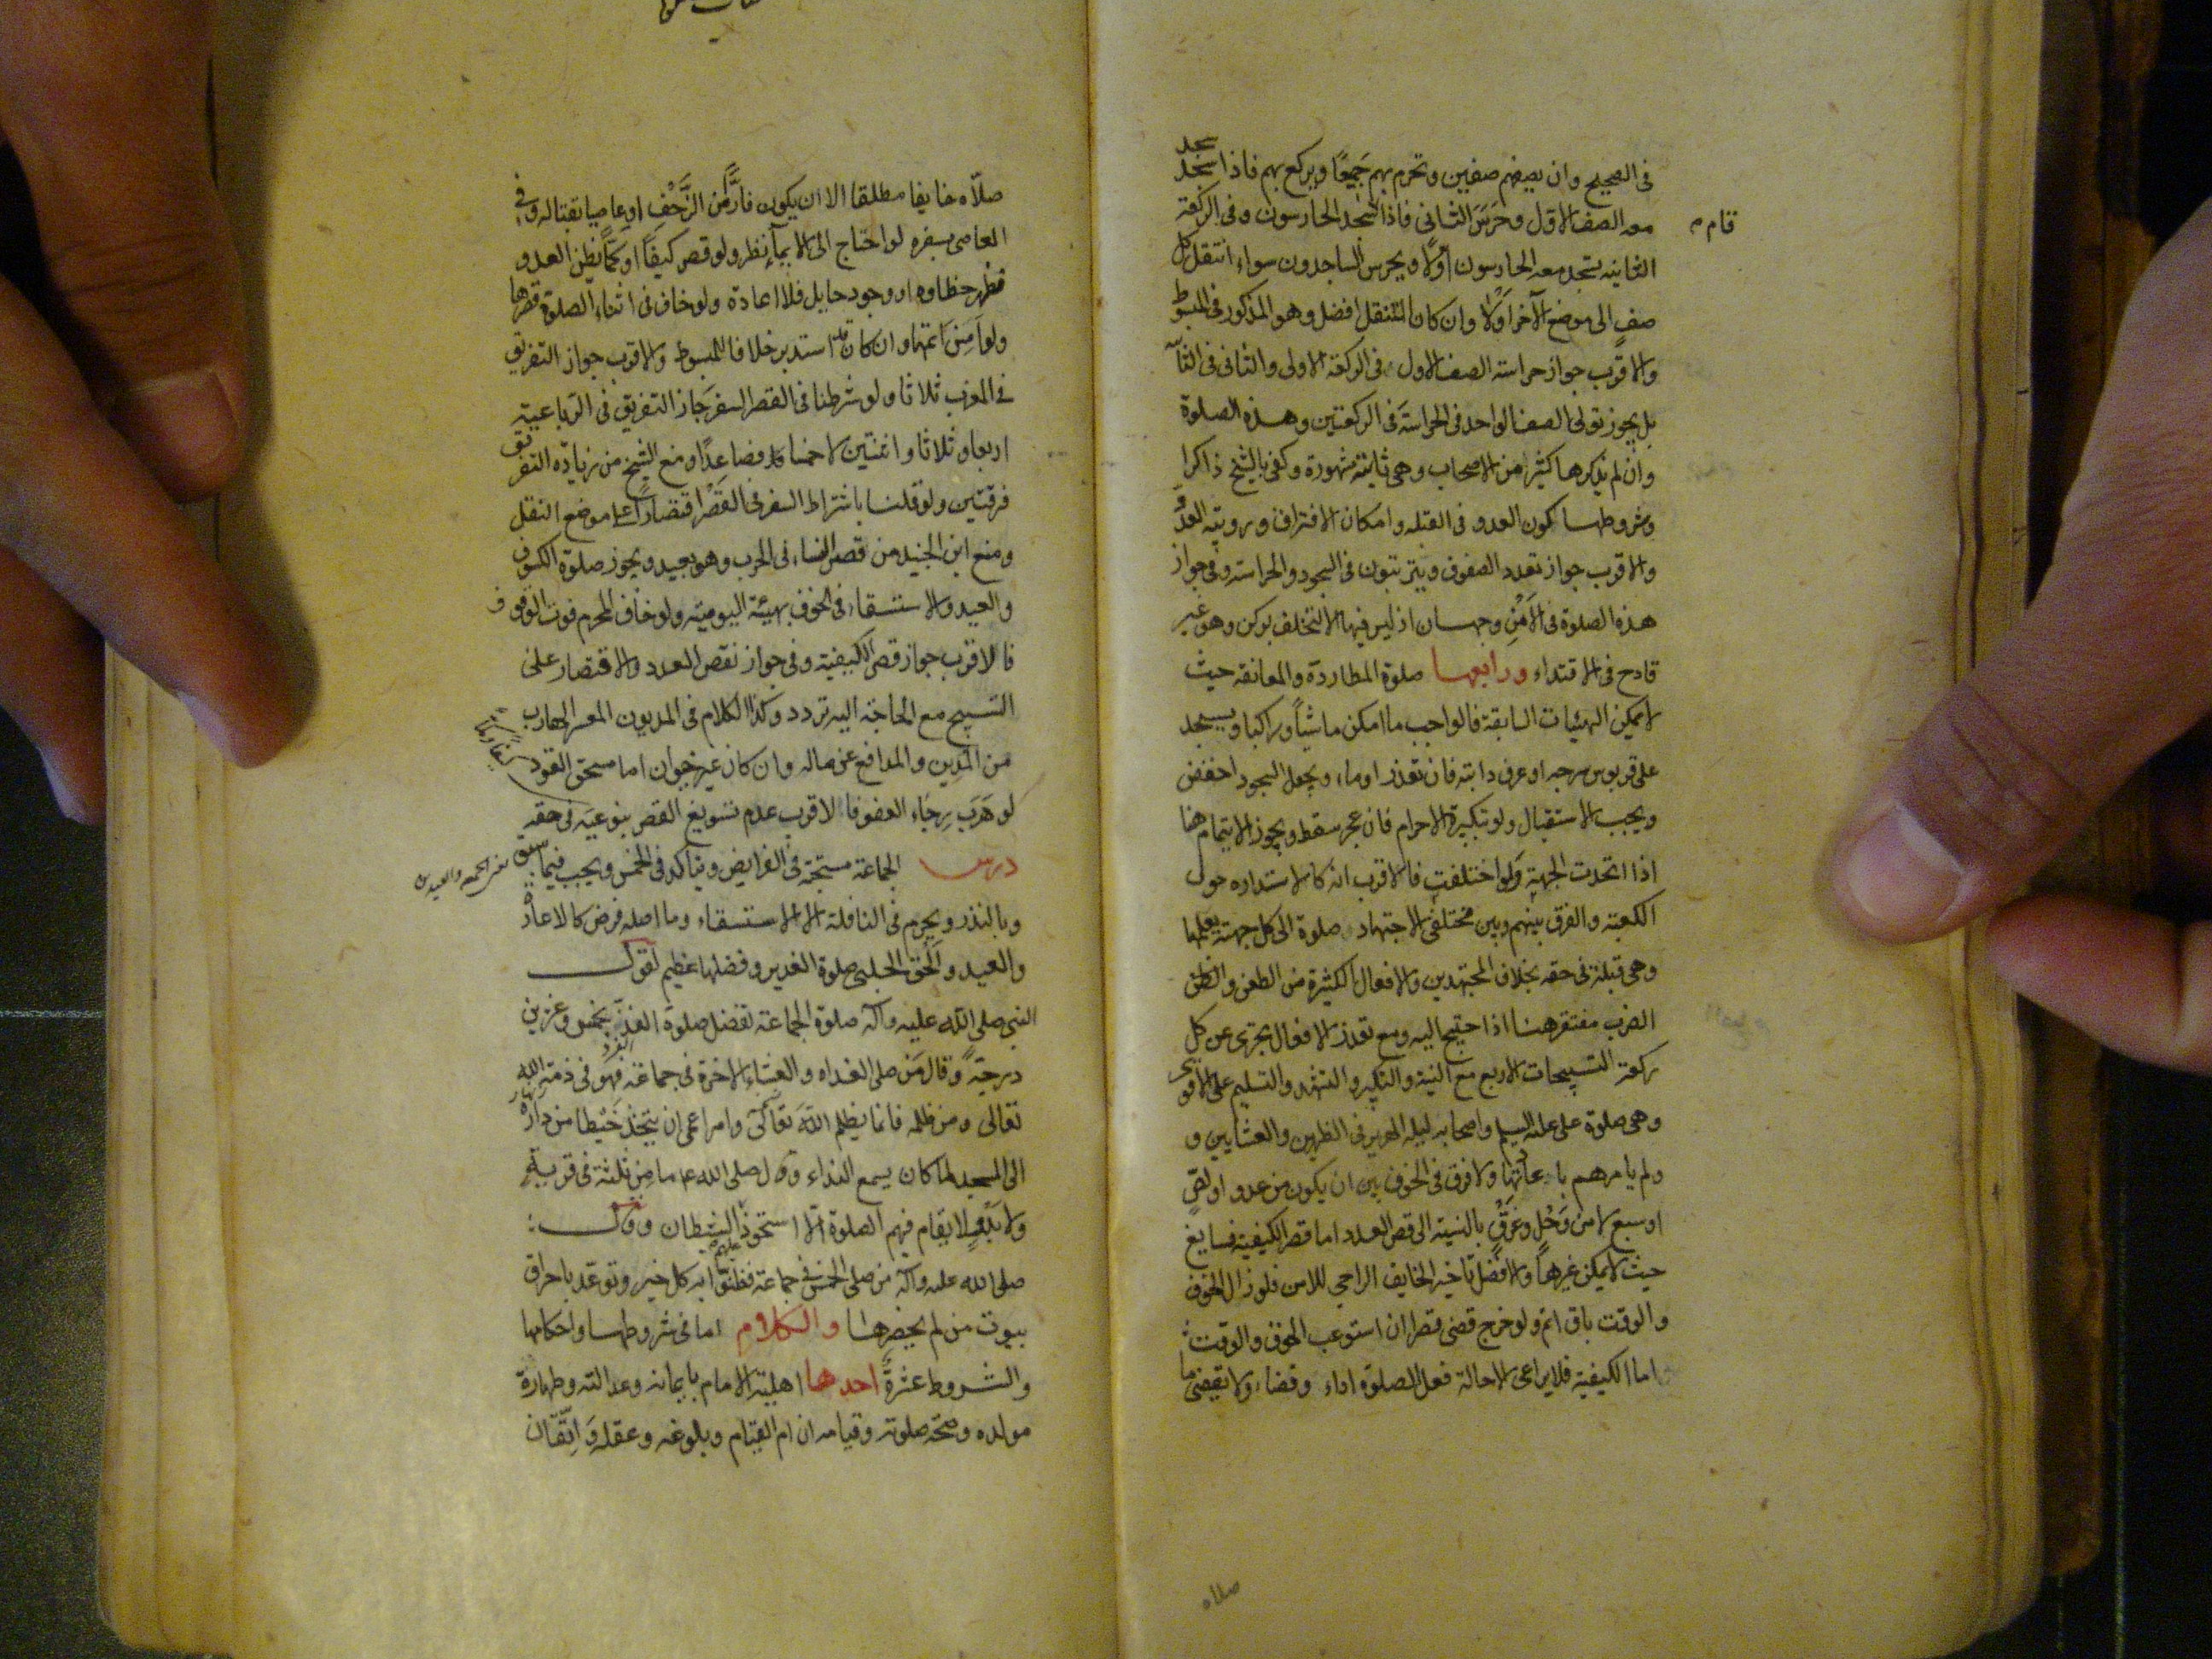 فى الصحيح وان يصفهم صفين وتحرم بهم جَميعًا ويركع بهم فاذا سجد سجد
معه الصف الاول وحَرَسَ الثانى فاذا سجد الحارسون وفى الركعة
قام م
الثانيه يسجد معه الحارسون اوّلًا ويحرس الساجدون سواء انتقل كل
صف الى موضع الآخر اوّلا وان كان التنقل افضل وهو المذكور فى المبسوط
والاقرب جواز حراسة الصف الاول فى الركعة الاولى والثانى فى الثانية
بل يجوز تولى الصف الواحد فى الحراسة فى الركعتين وهذه الصلوة
وان لم يذكرها كثير من الاصحاب وهى ثابتة مشهورة وكفى بالشيخ ذاكرا
وشروطها كون العدو فى القبله وامكان الافتراق ورويته العدوّ
والاقرب جواز تعدد الصفوف ويترتبون فى السجود والحراسة وفى جواز
هذه الصلوة فى الامْنِ وجهان اذ ليس فيها الا التخلف بركن وهو غير
قادح فى الاقتداء ورابعها صلوة المطاردة والمعانقه حيث
لا يمكن الهيئات السابقة فالواجب ما امكن ماشيًا وراكبا ويسجد
على قربوس سرجه او عرف دابته فان تعذر اوماء ويجعل السجود اخفض
ويجب الاستقبال ولو بتكبيرة الاحرام فان عجز سقط ويجوز الايتمام هنا
اذا اتحدت الجهة ولو اختلفت فالاقرب انه كالاستداره حول
الكعبة والفرق بينهم وبين مختلفى الاجتهاد صلوة الى كل جهة يعلمها
وهى قبلة فى حقه بخلاف المجتهدين والافعال الكثيرة من الطعن والطن
الضرب مفتقر هنا اذا احتيج اليه ومع تعذر الافعال يجزى عن كل
ركعة التسبيحات الاربع مع النية والتكبير والتشهد والتسليم على الاقوى
وهى صلوة على عليه السلم واصحابه ليلة الهرير فى الظهرين والعشايين و
ولم يامرهم باعادتها ولا فرق فى الخوف بين ان يكون من عدو او لصٍّ
او سبع لا من وَحْل وغَرَقٍ بالنسبة الى قصر العدد اما قصر الكيفية فسايغ
حيث لا يمكن غيرهاً والافضل تاخير الخايف الراجى للامن فلو زال الخوف
والوقت باق اتم ولو خرج قضى قصرا ان استوعب الخوف والوقت
اما الكيفية فلا يراعى الا حالة فعل الصلوة اداء وقضاء ولا يقضى ما
صلاه
صلّاه خايفا مطلقا الا ان يكون فارًّا من الزَّحْفِ او عاصيا بقتاله وفى
العاصى بسفره لو احتاج الى الايماء نظر ولو قصر كيفًا او كمًّا لظن العدو
فظهر خطاوه او وجود حايل فلا اعادة ولو خاف فى اثناء الصلوة قصرها
ولو اَمِنَ اتمها وان كان قد استدبر خلافا للمبسوط والاقرب جواز التفريق
فى المغرب ثلاثا ولو شرطنا فى القصر السفر جاز التفريق فى الرباعية
اربعا وثلاثا واثنتين لا خمسا فصاعدًا ومنع الشيخ من زيادة التفريق
فرقتين ولو قلنا باشتراط السفر فى القَصْر اقتصارًا على موضع النقل
ومنع ابن الجنيد من قصر النساء فى الحرب وهو بعيد ويجوز صلوة الكسوف
والعيد والاستسقاء فى الخوف بهيئة اليومية ولو خاف المحرم فوت الوقوف
فالاقرب جواز قصر الكيفية وفى جواز نقص العدد والاقتصار على
التسبيح مع الحاجة اليه تردد وكذا الكلام فى المديون المعسر الهارب
من المَدِين والمدافع عن ماله وان كان غير حيوان اما مستحق القود
لو هَرَبَ رجاء العفو فالاقرب عدم تسويغ القصر بنوعيه فى حقه
درس الجماعة مستحبة فى الفرايض ويتاكد فى الخمس ويجب فيما سبق
من الجمعه والعيدين
وبالنذر ويحرم فى النافلة الا الاستسقاء وما اصله فرض كالاعادة
والعيد والحق الحلبى صلوة الغدير وفضلها عظيم لقول
النبى صلى الله عليه وآله صلوة الجماعة تفضل صلوة الفذ بخمس وعشرين
درجةً وقال مَن صلى الغداه والعشاء الاخرة فى جماعة فهو فى ذمة الله
تعالى ومن ظلمه فانما يظلم الله تعالى وامر اعمى ان يتخذ خيطا من داره
الى المسجد لما كان يسمع النداء وقال صلى الله ع ما من ثلثة فى قرية
ولا بَدْوٍ لا يقام فيهم الصلوة الا استحوذ عليهم الشيطان وقال
صلى الله عليه وآله من صلى الخمس فى جماعة فظنوا به كل خير وتوعد باحراق
بيوت من لم يحضرها والكلام اما فى شروطها واحكامها
والشروط عشرةٌ احدها اهلية الامام بايمانه وعدالته وطهارة
مولده وصحة صلوته وقيامه ان ام القيام وبلوغه وعقله وَاتّقان